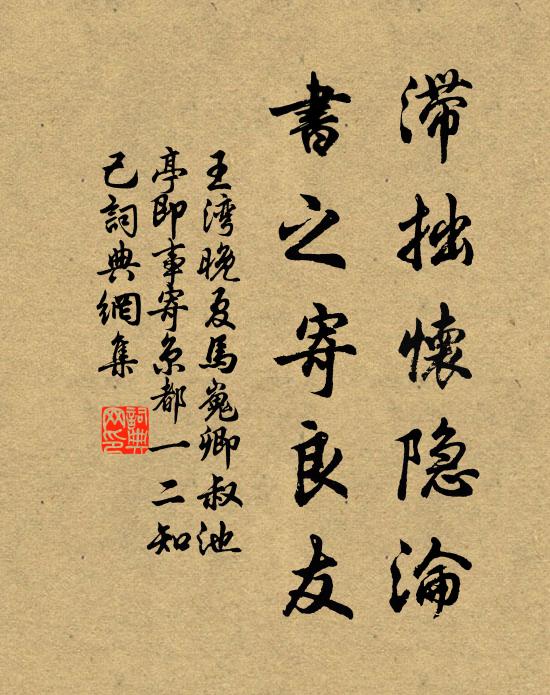 滞拙懷隐淪
書之寄良友
王湾晚夏馬嵬卿叔池
亭即事寄京都一二知
己詞典網集
詞典网印